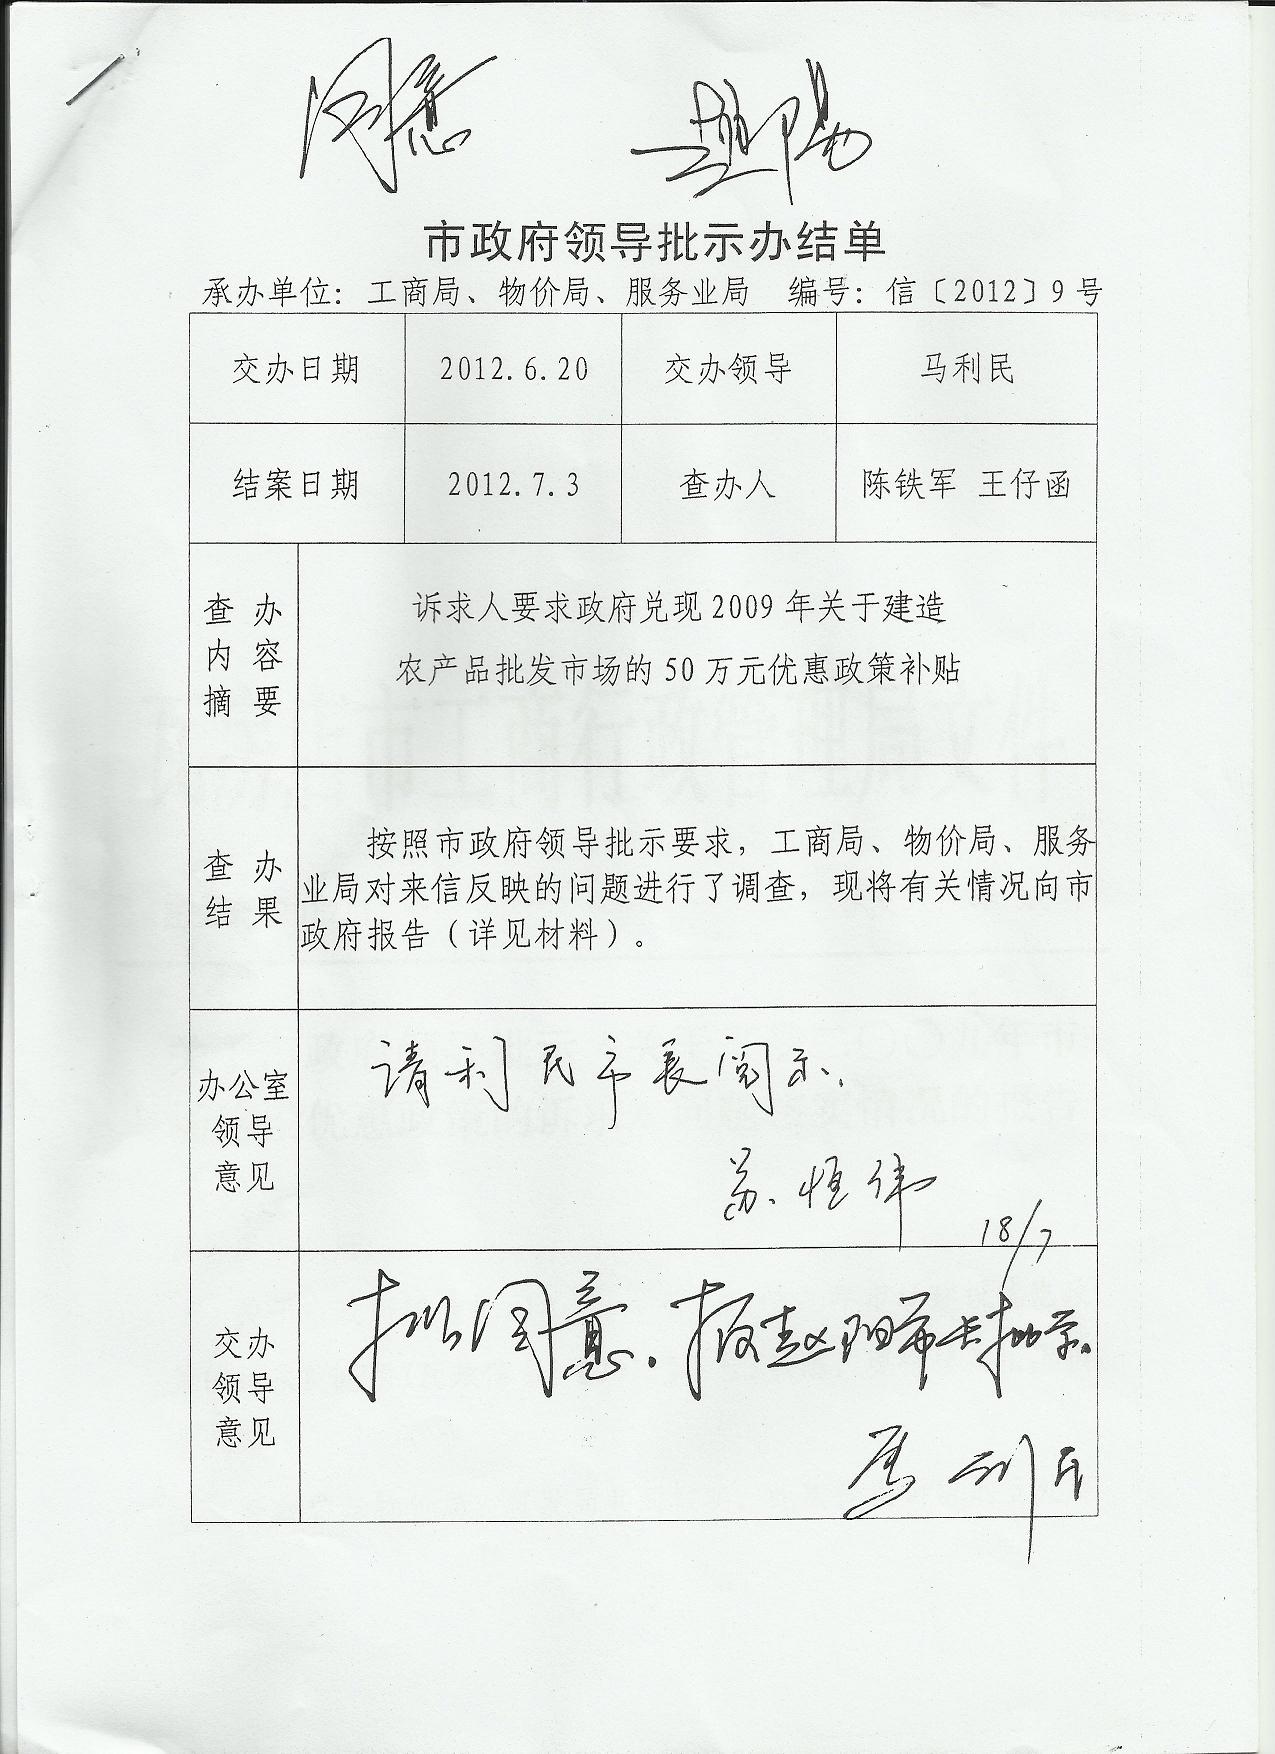 同意 赵阳
市政府领导批示办结单
承办单位：工商局、物价局、服务业局 编号：信〔2012〕9号
交办日期 2012.6.20 交办领导 马利民
结案日期 2012.7.3 查办人 陈铁军 王仔函
查办
内容
摘要
诉求人要求政府兑现2009年关于建造
农产品批发市场的50万元优惠政策补贴
查办
结果
按照市政府领导批示要求，工商局、物价局、服务
业局对来信反映的问题进行了调查，现将有关情况向市
政府报告（详见材料）。
办公室
领导
意见
请利民市长阅示.
苏恒伟
18/7
交办
领导
意见
拟同意.报赵阳市长批示.
马利民